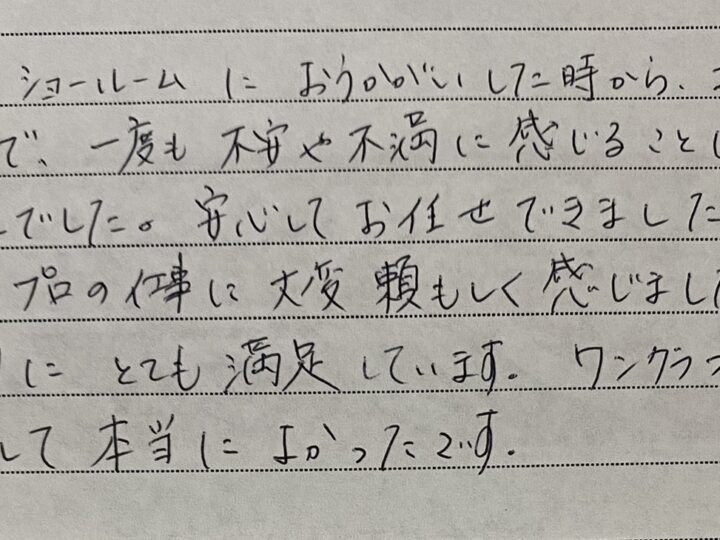 ショールームに おうかがいした時から、
で、一度も 不安や不満に感じること
でした。安心してお任せできました
プロの仕事に大変頼もしく感じまし
に とても満足しています。ワングラ
して本当に よかったです。